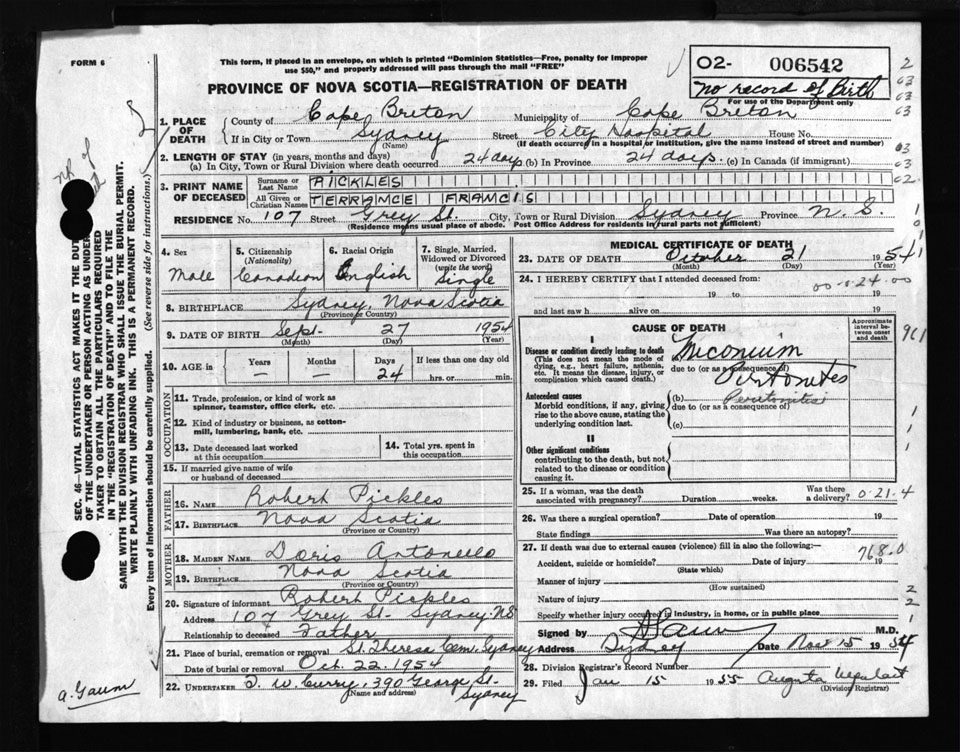 FORM 6
This form, if placed in an envelope, on which is printed "Dominion Statistics—Free, penalty for improper
use $50," and properly addressed will pass through the mail "FREE"
PROVINCE OF NOVA SCOTIA—REGISTRATION OF DEATH
02- 006542
no record of Birth
For use of the Department only
1. PLACE OF DEATH
County of Cape Breton Municipality of Cape Breton
If in City or Town Sydney Street City Hospital House No.
(Name) (If death occurred in a hospital or institution, give the name instead of street and number)
2. LENGTH OF STAY (in years, months and days)
(a) In City, Town or Rural Division where death occurred 24 days (b) In Province 24 days. (c) In Canada (if immigrant)
3. PRINT NAME OF DECEASED
Surname or Last Name PICKLES
All Given or Christian Names TERRANCE FRANCIS
RESIDENCE No. 107 Street Grey St. City, Town or Rural Division Sydney Province N.S.
(Residence means usual place of abede. Post Office Address for residents in rural parts not sufficient)
4. Sex
Male
5. Citizenship
(Nationality)
Canadian
6. Racial Origin
English
7. Single, Married,
Widowed or Divorced
(write the word)
Single
8. BIRTHPLACE Sydney, Nova Scotia
(Province or Country)
9. DATE OF BIRTH Sept. 27 1954
(Month) (Day) (Year)
10. AGE in
Years Months Days If less than one day old
— — 24 hrs. or min.
OCCUPATION
11. Trade, profession, or kind of work as
spinner, teamster, office clerk, etc.
12. Kind of industry or business, as cotton-
mill, lumbering, bank, etc.
13. Date deceased last worked
at this occupation
14. Total yrs. spent in
this occupation
15. If married give name of wife
or husband of deceased
FATHER
16. Name Robert Pickles
17. Birthplace Nova Scotia
(Province or Country)
MOTHER
18. Maiden Name Doris
19. Birthplace Nova Scotia
(Province or Country)
20. Signature of informant Robert Pickles
Address 107 Grey St. Sydney. NS
Relationship to deceased Father
21. Place of burial, cremation or removal St. Theresa Cem. Sydney
Date of burial or removal Oct. 22. 1954
22. Undertaker T. W. Curry. 390 George St.
(Name and address) Sydney
MEDICAL CERTIFICATE OF DEATH
23. DATE OF DEATH October 21 1954
(Month) (Day) (Year)
24. I HEREBY CERTIFY that I attended deceased from:
00-1-24-00
19 to 19
and last saw h alive on 19
CAUSE OF DEATH
Approximate
interval between
onset
and death
I
Disease or condition directly leading to death
(This does not mean the mode of
dying, e.g., heart failure, asthenia,
etc. It means the disease, injury, or
complication which caused death.)
Miconium
due to (or as a consequence of)
Peritonites
Antecedent causes
Morbid conditions, if any, giving
rise to the above cause, stating the
underlying condition last.
(b) Peritonitis
due to (or as a consequence of)
(c)
II
Other significant conditions
contributing to the death, but not
related to the disease or condition
causing it.
25. If a woman, was the death
associated with pregnancy? Duration weeks. Was there
a delivery? 0-21-4
26. Was there a surgical operation? Date of operation 19
State findings Was there an autopsy?
27. If death was due to external causes (violence) fill in also the following:—
768.0
Accident, suicide or homicide? Date of injury 19
(State which)
Manner of injury
(How sustained)
Nature of injury
Specify whether injury occurred in industry, in home, or in public place
Signed by M.D.
Address Sydney Date Nov 15 1954
28. Division Registrar's Record Number
29. Filed Jan 15 1955 Augusta
(Division Registrar)
SEC. 46—VITAL STATISTICS ACT MAKES IT THE DUTY
OF THE UNDERTAKER OR PERSON ACTING AS UNDER-
TAKER TO OBTAIN ALL THE PARTICULARS REQUIRED
IN THE "REGISTRATION OF DEATH" AND TO FILE THE
SAME WITH THE DIVISION REGISTRAR WHO SHALL ISSUE THE BURIAL PERMIT.
WRITE PLAINLY WITH UNFADING INK. THIS IS A PERMANENT RECORD.
Every item of information should be carefully supplied. (See reverse side for instructions.)
a. Gaum